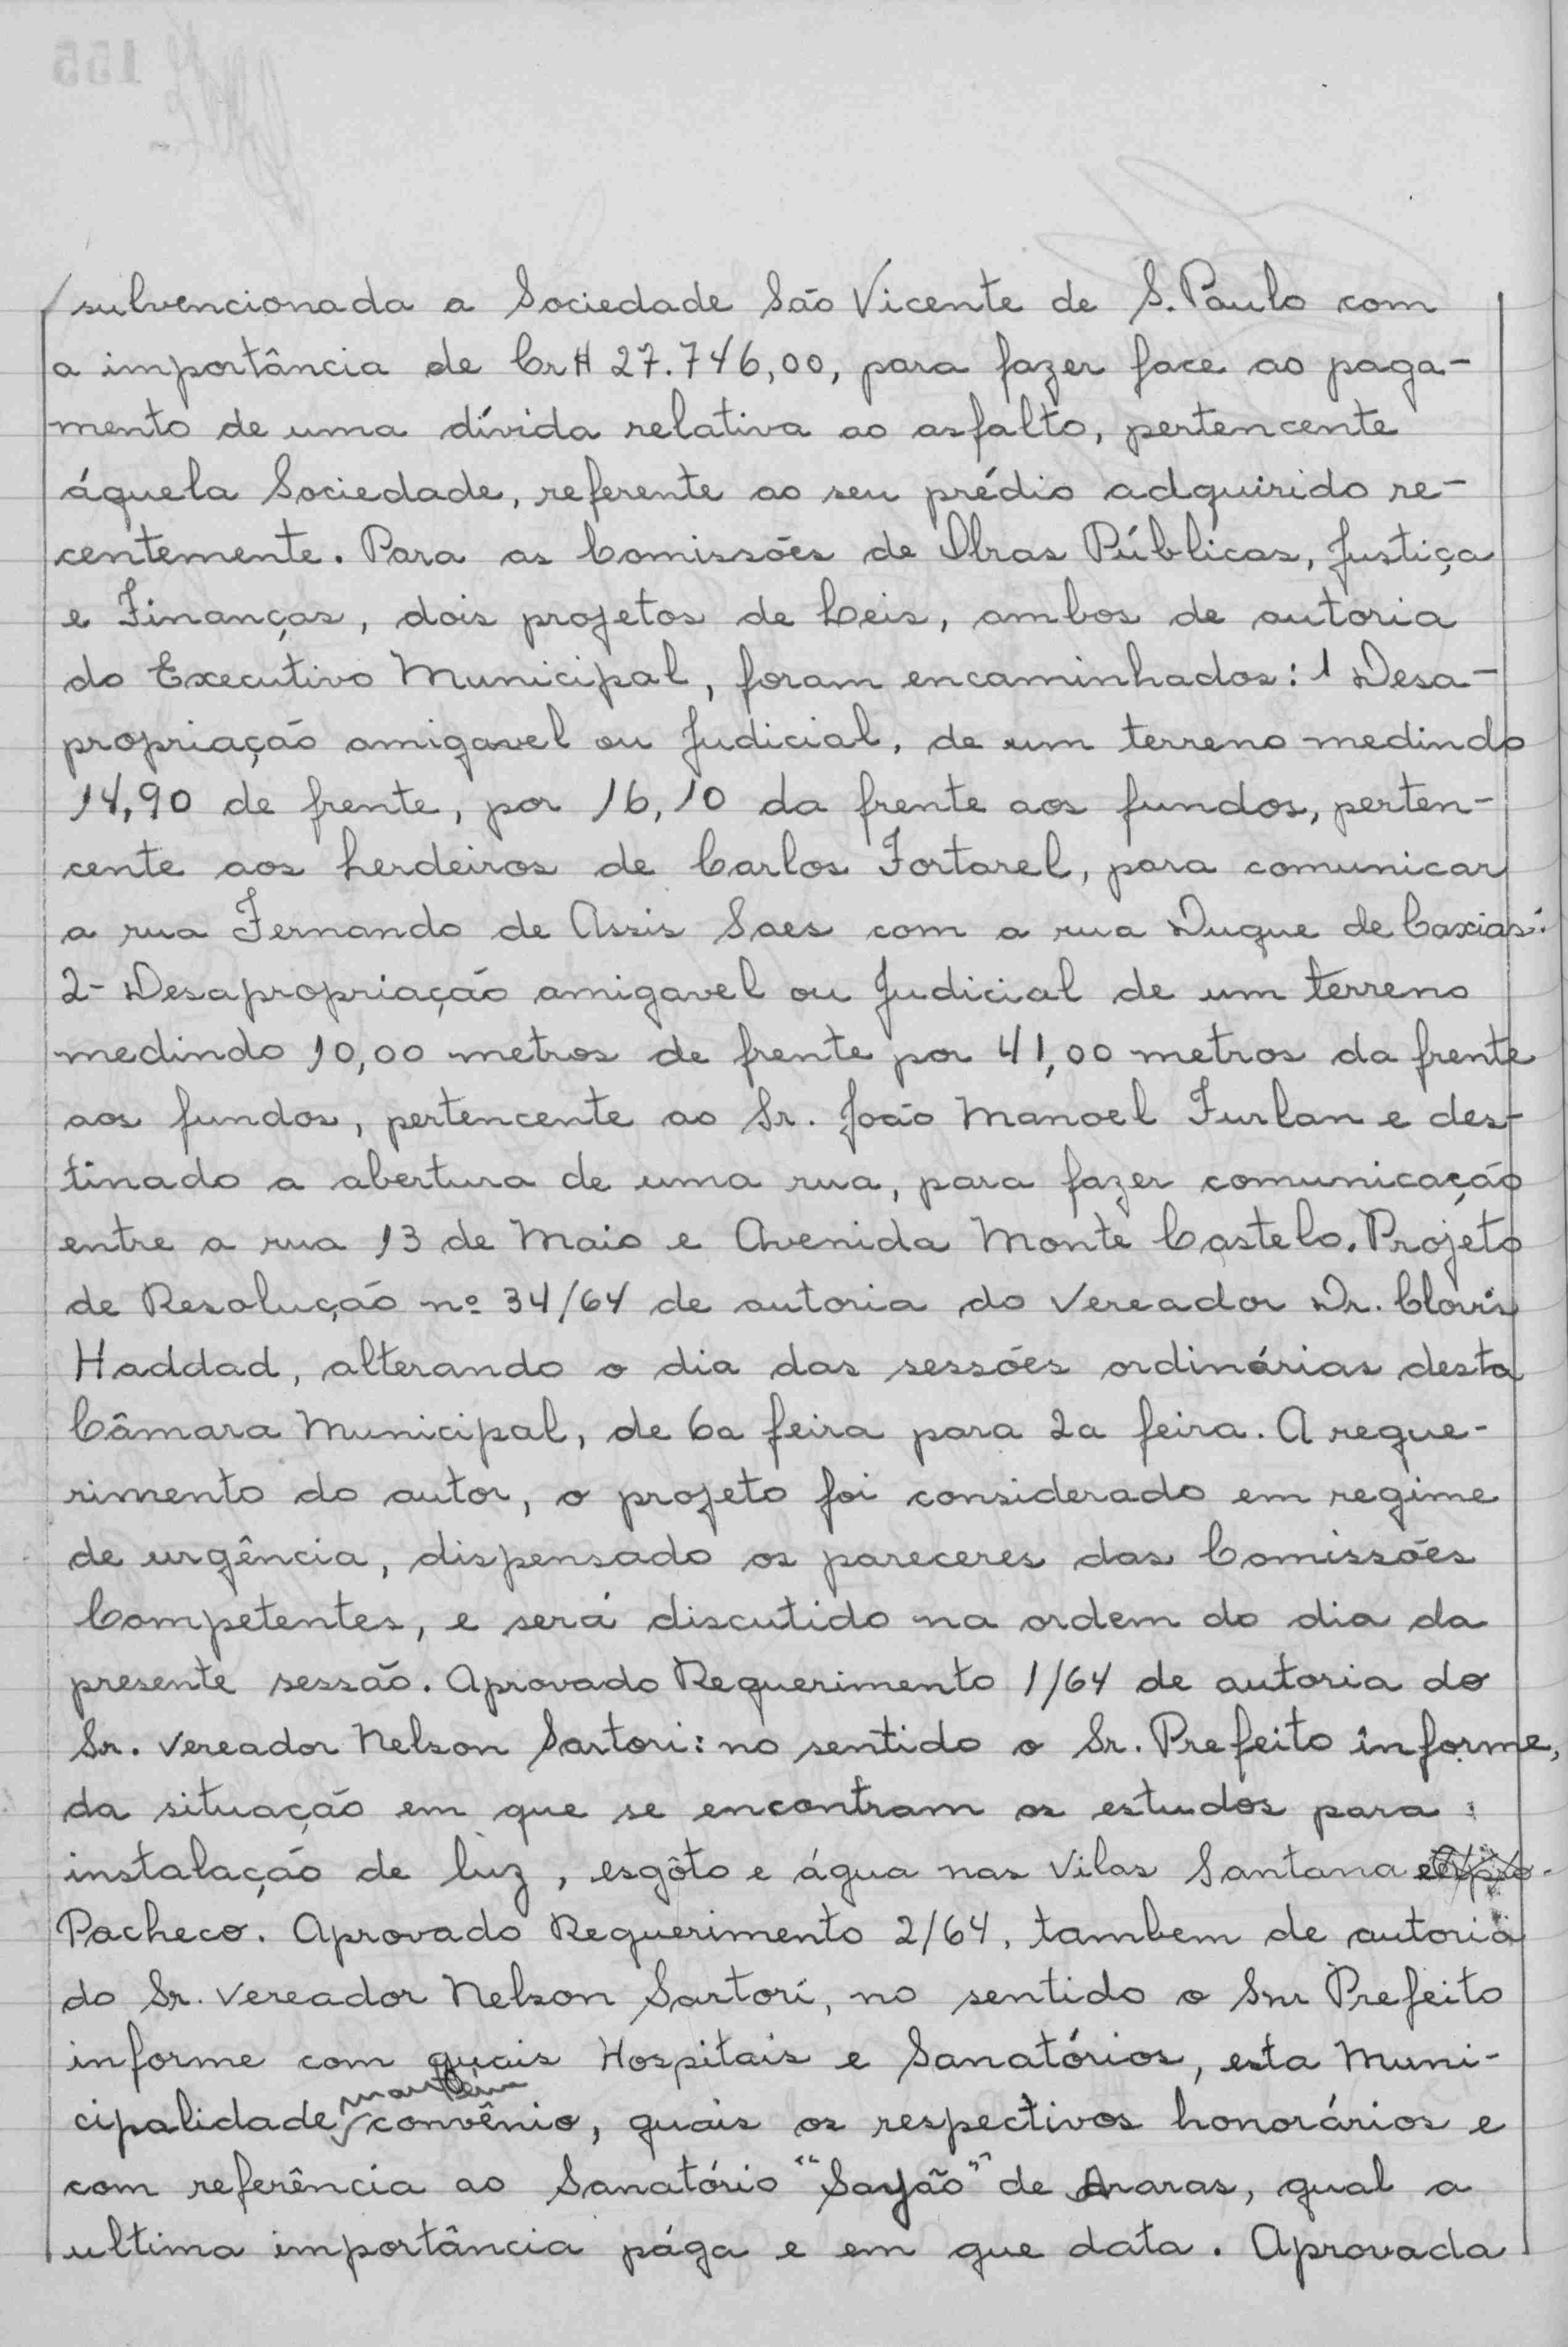 subvencionada a Sociedade São Vicente de S. Paulo com
a importância de Cr$ 27.746,00, para fazer face ao paga-
mento de uma dívida relativa ao asfalto, pertencente
áquela Sociedade, referente ao seu prédio adquirido re-
centemente. Para as Comissões de Obras Públicas, Justiça
e Finanças, dois projetos de Leis, ambos de autoria
do Executivo Municipal, foram encaminhados: 1 Desa-
propriação amigavel ou Judicial, de um terreno medindo
14,90 de frente, por 16,10 da frente aos fundos, perten-
cente aos herdeiros de Carlos Fortarel, para comunicar
a rua Fernando de Assis Saes com a rua Duque de Caxias:
2- Desapropriação amigavel ou Judicial de um terreno
medindo 10,00 metros de frente por 41,00 metros da frente
aos fundos, pertencente ao Sr. João Manoel Furlan e des-
tinado a abertura de uma rua, para fazer comunicação
entre a rua 13 de Maio e Avenida Monte Castelo. Projeto
de Resolução nº 34/64 de autoria do Vereador Dr. Clovis
Haddad, alterando o dia das sessões ordinárias desta
Câmara Municipal, de 6a feira para 2a feira. A reque-
rimento do autor, o projeto foi considerado em regime
de urgência, dispensado os pareceres das Comissões
Competentes, e será discutido na ordem do dia da
presente sessão. Aprovado Requerimento 1/64 de autoria do
Sr. Vereador Nelson Sartori: no sentido o Sr. Prefeito informe,
da situação em que se encontram os estudos para
instalação de luz, esgôto e água nas Vilas Santana e
Pacheco. Aprovado Requerimento 2/64, tambem de autoria
do Sr. Vereador Nelson Sartori, no sentido o Snr Prefeito
informe com quais Hospitais e Sanatórios, esta Muni-
cipalidade mantêm convênio, quais os respectivos honorários e
com referência ao Sanatório "Sayão" de Araras, qual a
ultima importância pága e em que data. Aprovada